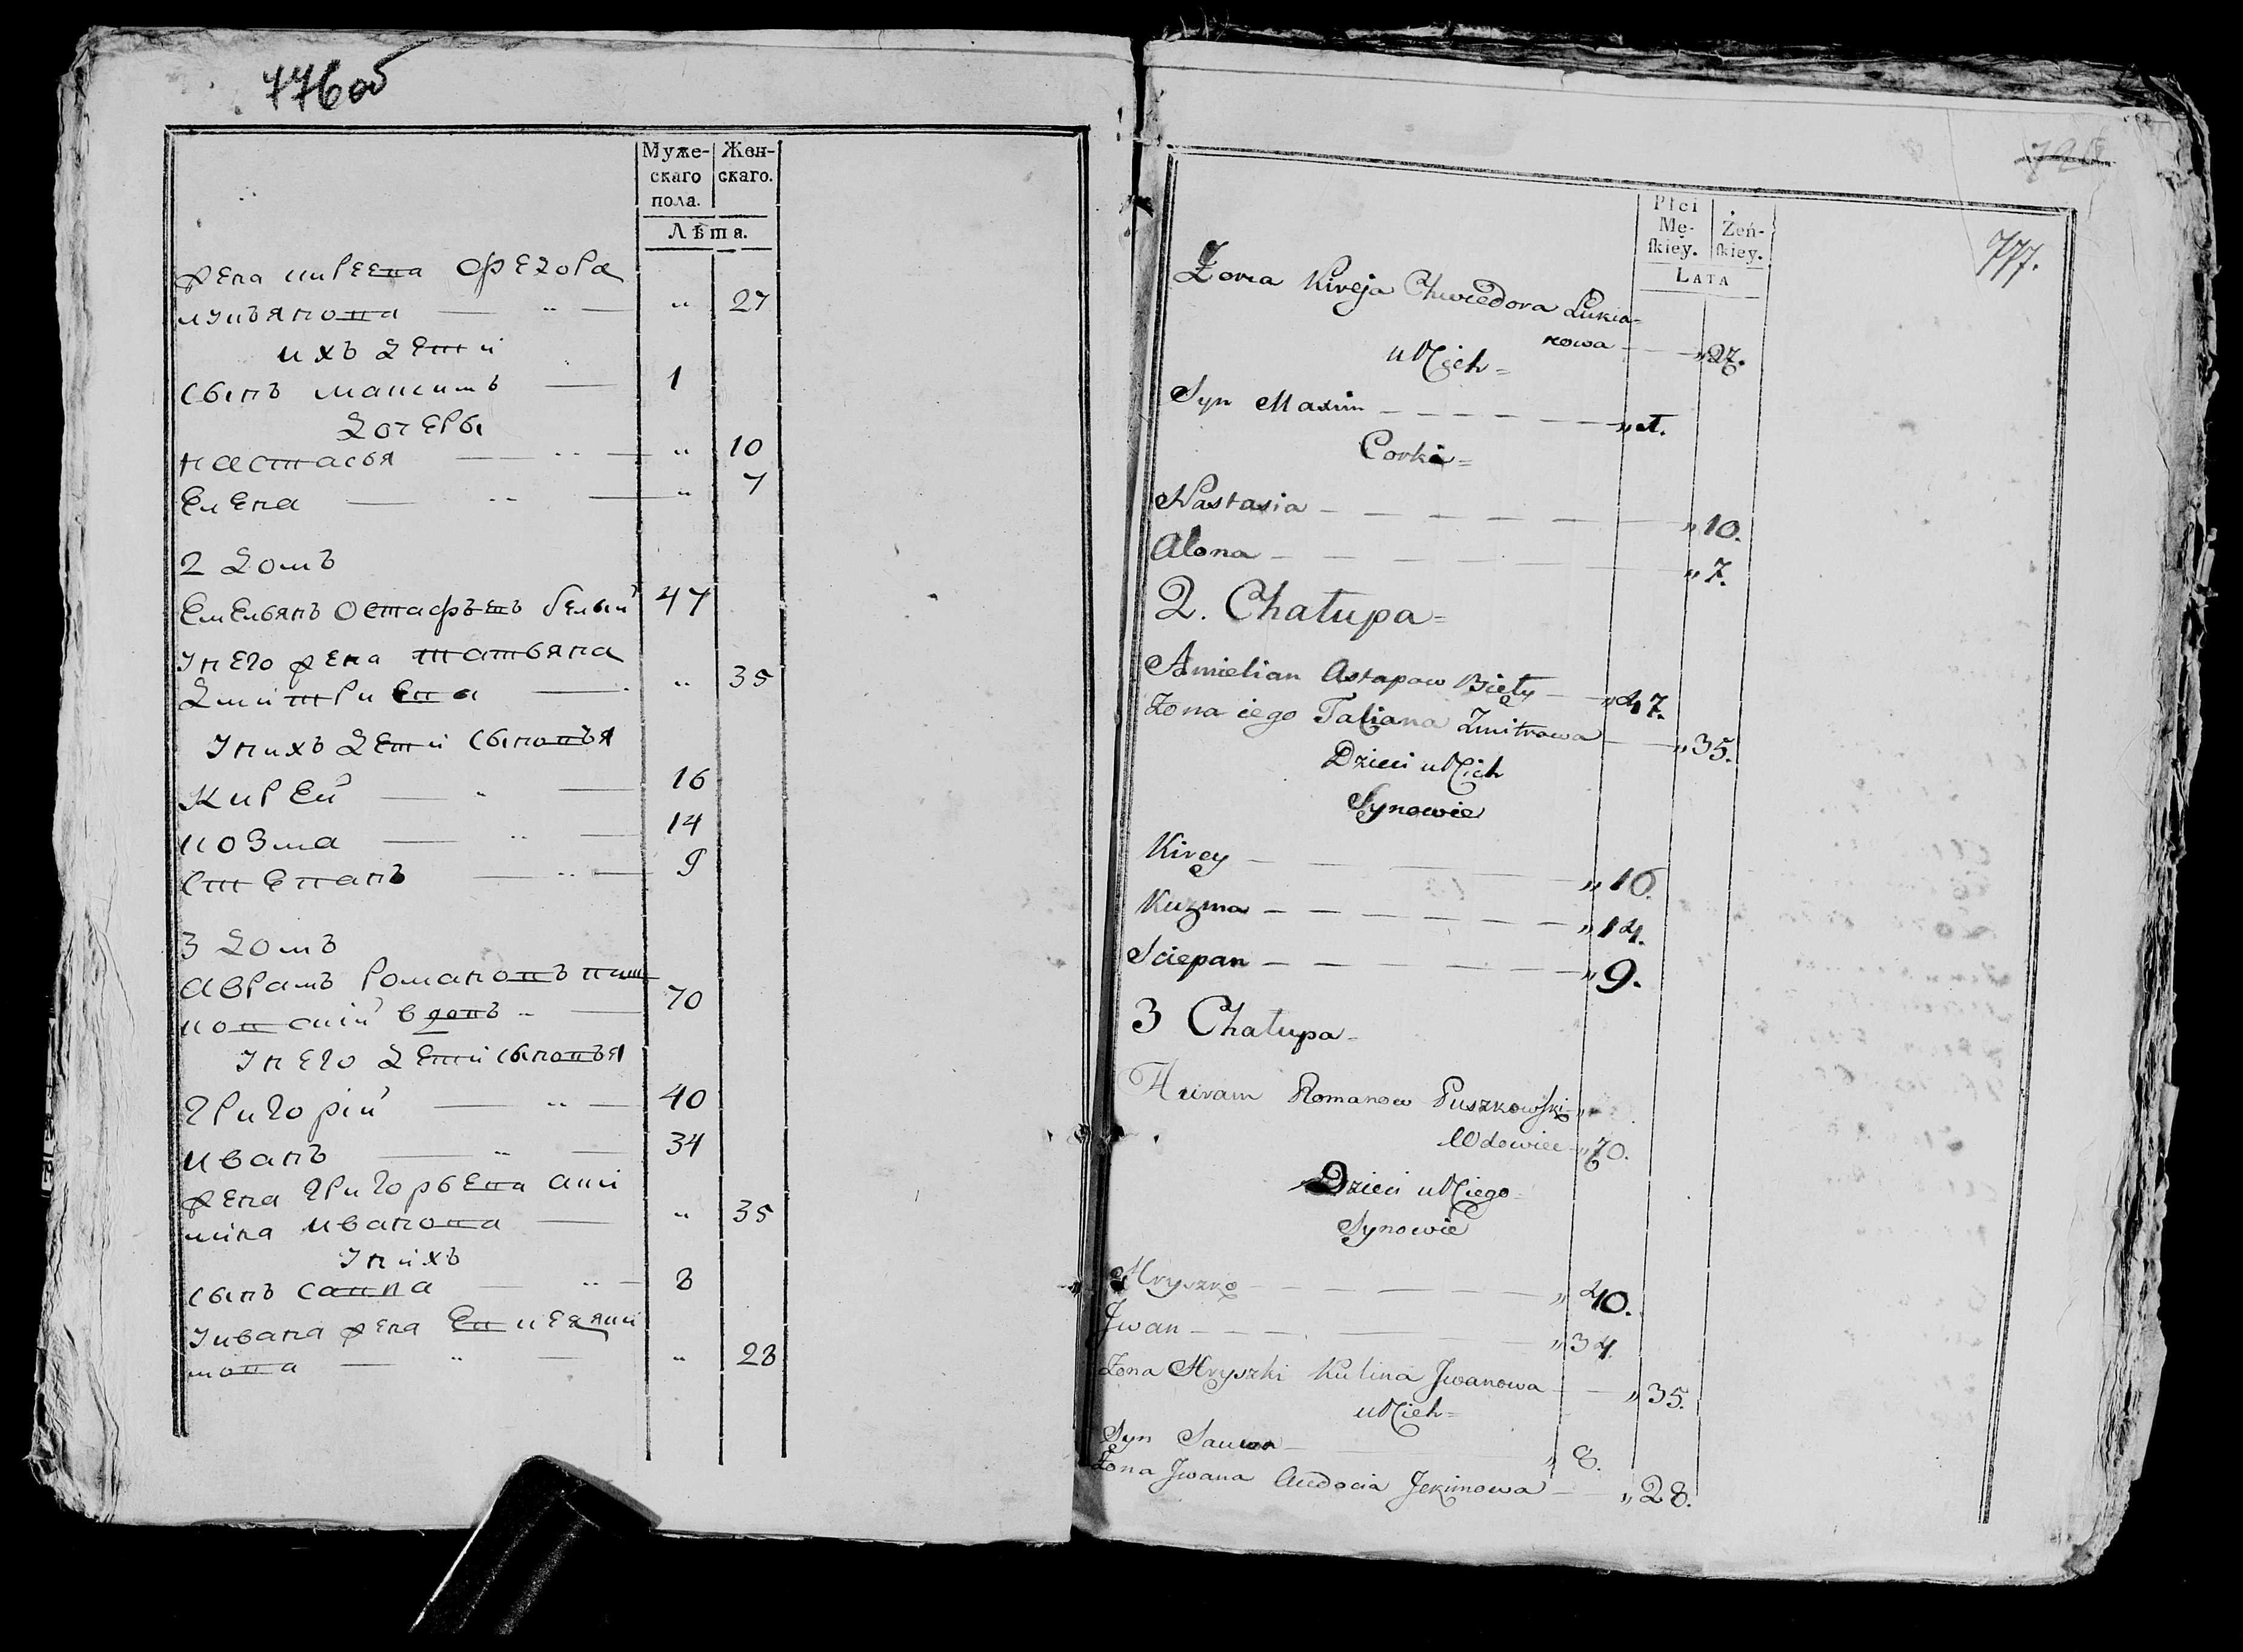 776об
Муже-
скаго
пола.
Жен-
скаго.
Лѣта.
жена киреева Ѳедора
лукьянова — „ — „ 27
ихъ дети
сынъ максимъ — 1
дочеры
настасья — „ — „ 10
Елена — „ — „ 7
2 домъ
Емельянъ остафьевъ белый 47
унего жена татьяна
дмитриева — „ 35
унихъ дети сыновья
Кирей — „ — 16
козма — „ — 14
степанъ — „ — 9
3 домъ
аврамъ романовъ
ковский вдовъ „ — 70
унего дети сыновья
григорий — „ — 40
иванъ — „ — 34
жена григорьева аки
лина иванова — „ 35
унихъ
сынъ савка — „ — 8
уивана жена
мова — „ — „ 28
728
777.
Płci
Mę-
ſkiey.
Żeń-
ſkiey.
LATA
Żona Kireja Chwiedora Lukia=
nowa — „27.
u Nich=
Syn Maxim — „1.
Corki=
Nastasia — „10.
Alona — „7.
2. Chałupa=
Amielian Astapow Biely — „47.
Żona iego Taciana Zmitrowa — „35.
Dzieci u Nich
Synowie
Kirey — „16.
Kuzma — „14.
Sciepan — „9.
3 Chałupa=
Auram Romanow Puszkowski „
Wdowiec „70.
Dzieci u Niego=
Synowie
Hryszko — „40.
Jwan — „34.
Żona Hryszki Kulina Jwanowa — „35.
u Nich=
Syn Sauwa — „8.
Żona Jwana Audocia Jekimowa — „28.